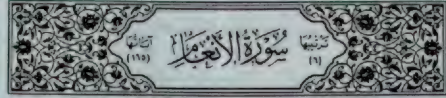 ترتيبها سُورَةُ الأَنْعَامِ آياتها
(٦) (١٦٥)